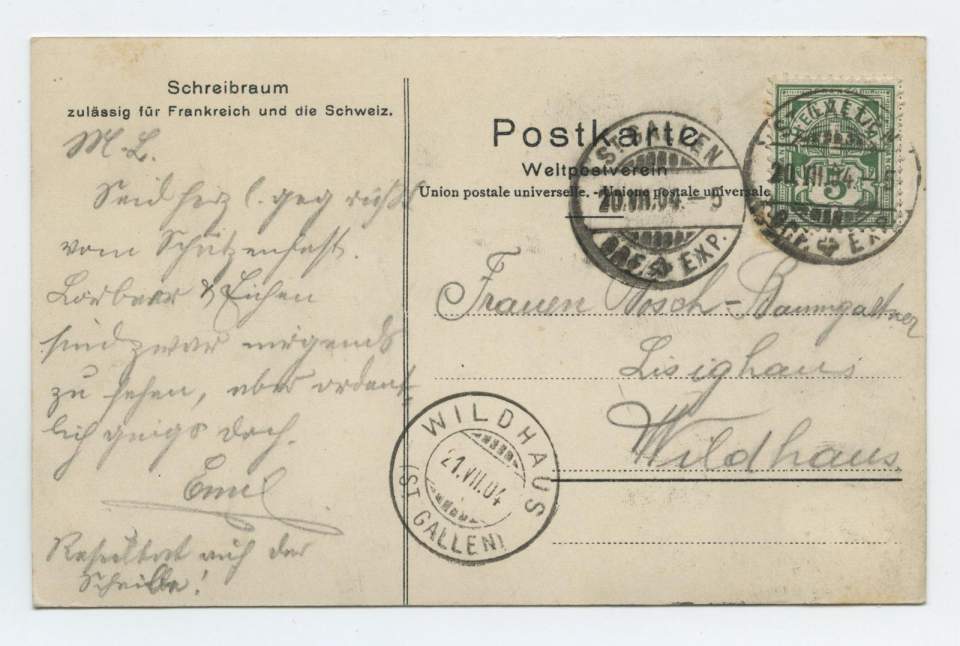 Schreibraum
zulässig für Frankreich und die Schweiz.
M. L.
Seid herzl. gegrüßt
vom Schützenfest.
Lorbeer & Eichen
sind zwar nirgends
zu sehen, aber ordent-
lich gings doch.
Emil
Resultat auf der
Scheibe!
Postkarte
Weltpostverein
Union postale universelle. - Unione postale universale
ST. GALLEN
20.VII.04.-5
BRF. EXP.
HELVETIA
5
ST. GALLEN
20.VII.04.-5
BRF. EXP.
Frauen Bosch-Baumgartner
Lisighaus
Wildhaus
WILDHAUS
21.VII.04
(ST. GALLEN)